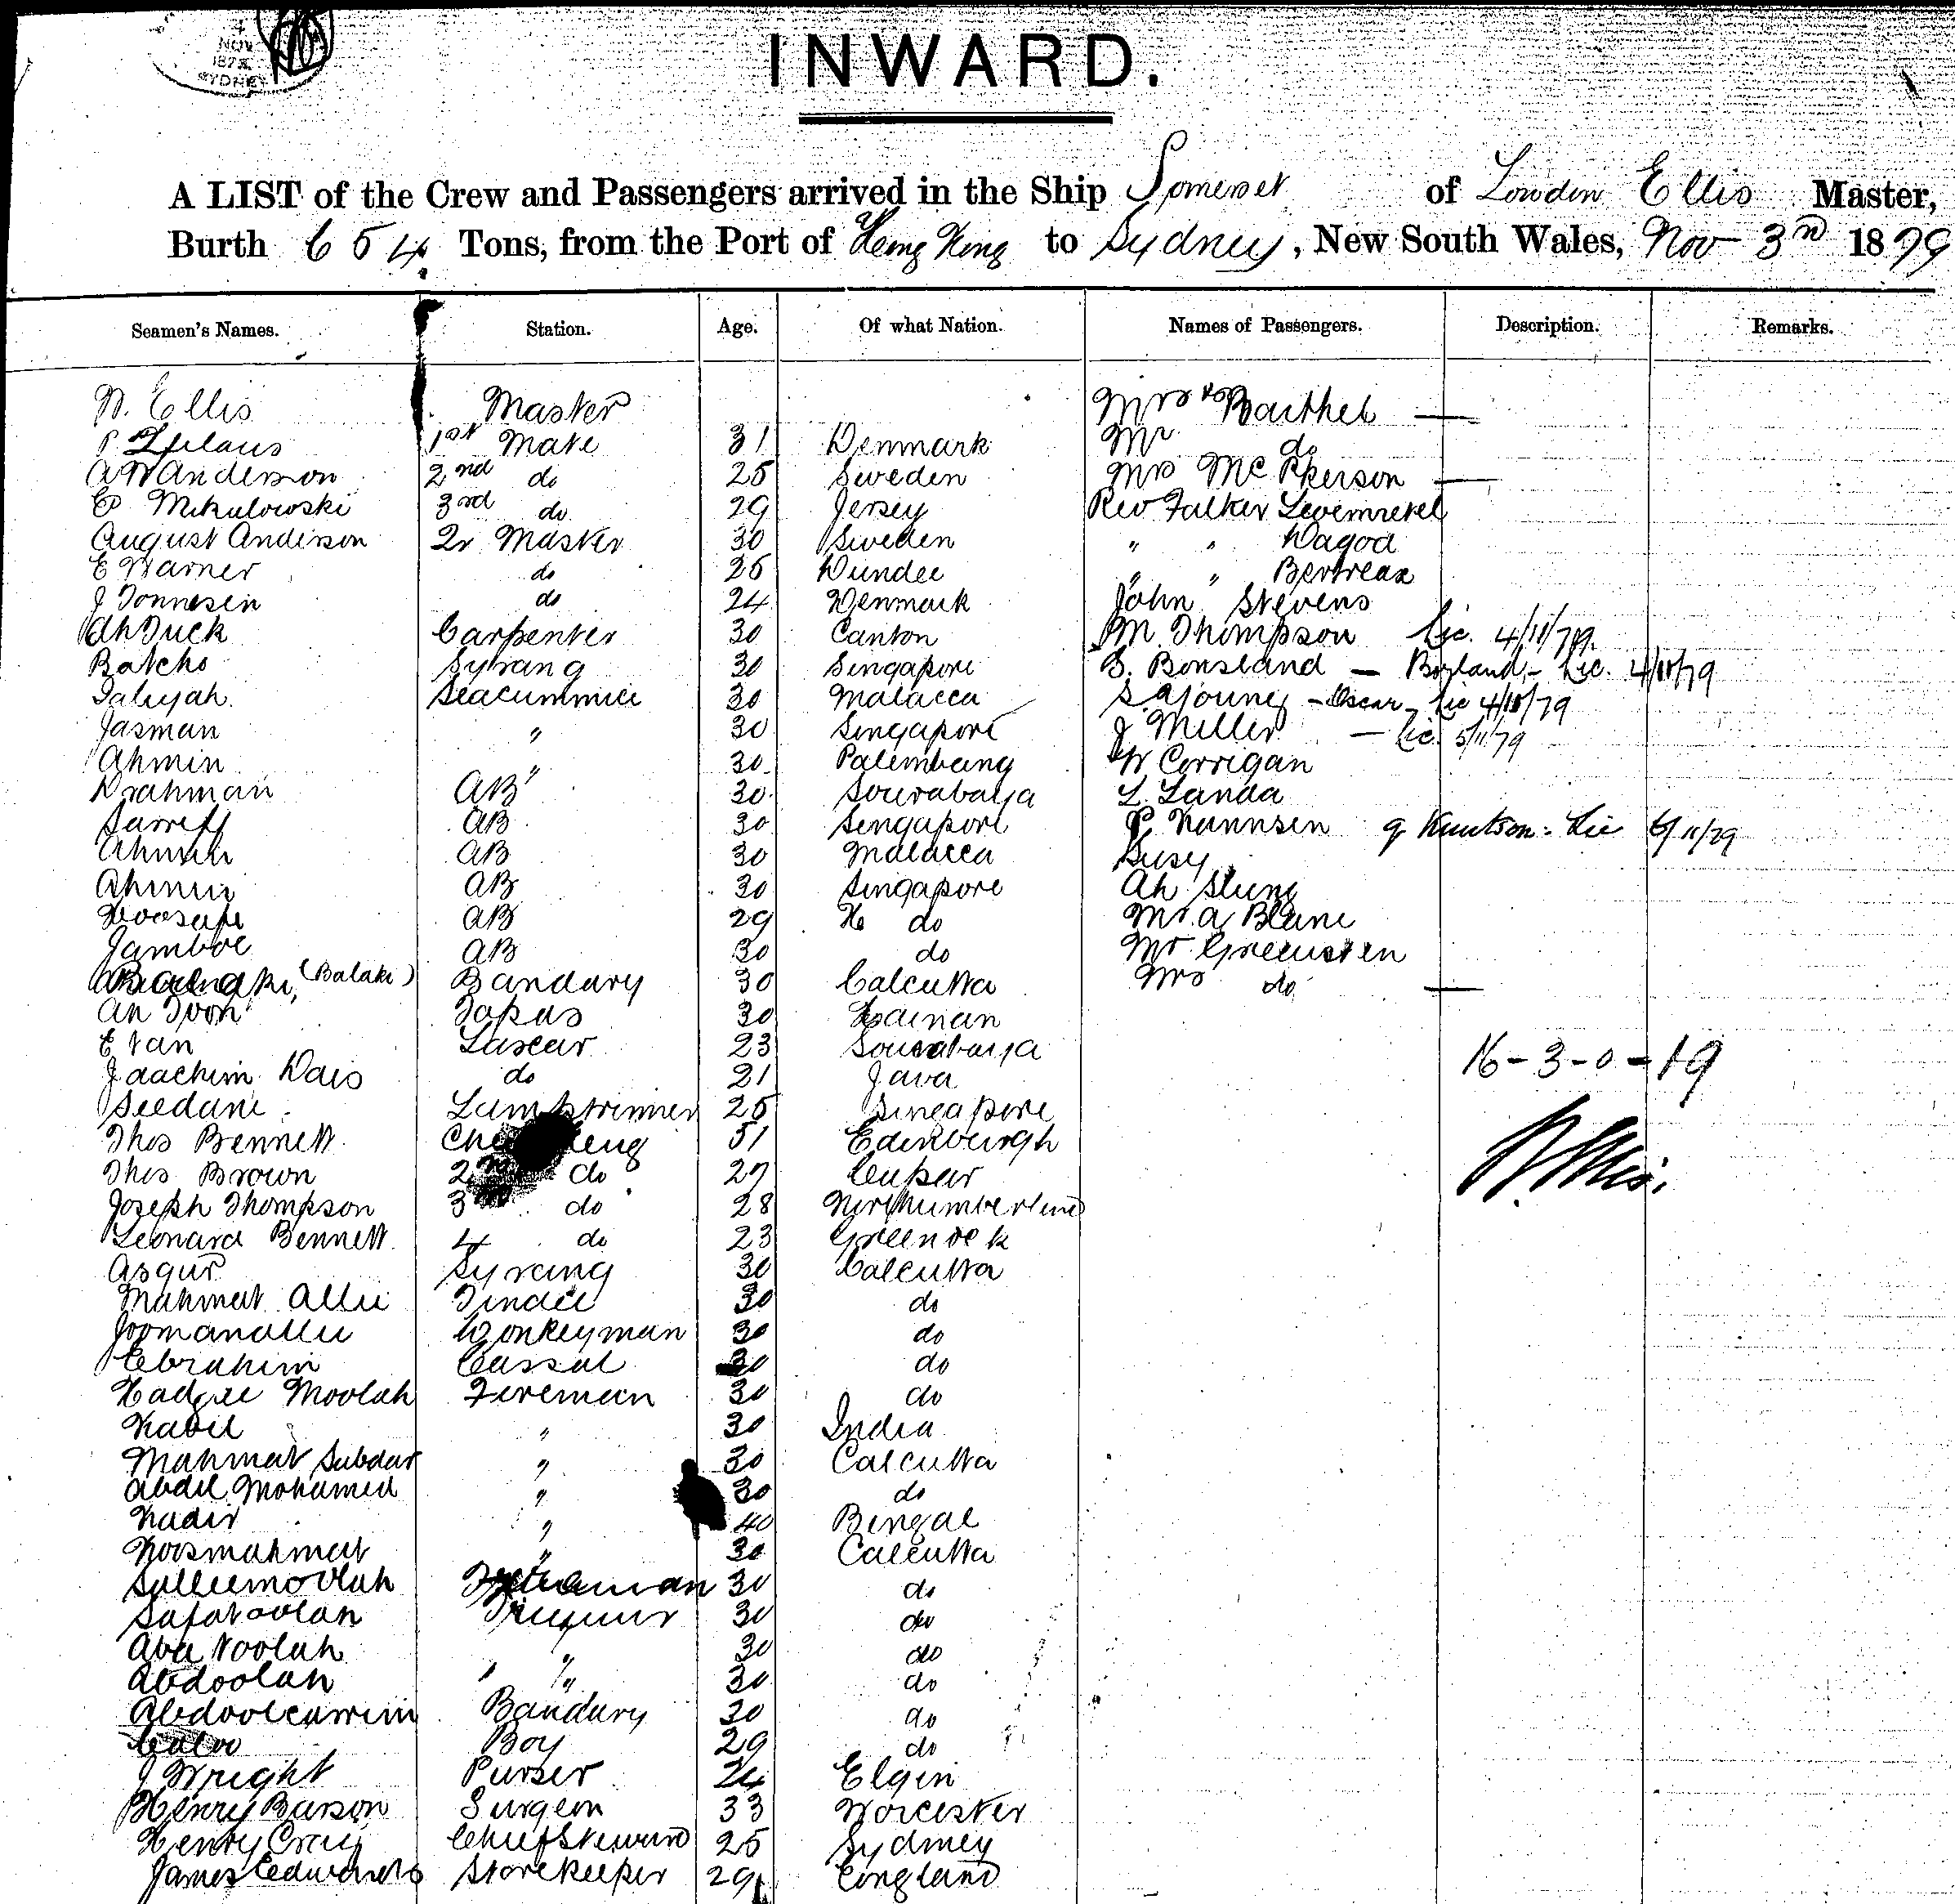 4
NOV
187
SYDNEY
INWARD.
A LIST of the Crew and Passengers arrived in the Ship Somerset of London Ellis Master,
Burth 654 Tons, from the Port of Hong Kong to Sydney, New South Wales, Nov 3rd 1879
Seamen's Names. Station. Age. Of what Nation. Names of Passengers. Description. Remarks.
Ellis Master Mrs Barthel —
P 1st Mate 31 Denmark Mr do
A W Anderson 2nd do 25 Sweden Mrs McPherson —
Mikulowski 3rd do 29 Jersey Rev Father
August Anderson Qr Master 30 Sweden " "
E Warner do 25 Dundee " "
J Tonnesen do 24 Denmark John Stevens
Ah Duck Carpenter 30 Canton M. Thompson Lic. 4/11/79.
Batcho Syrang 30 Singapore Bonsland — Boyland — Lic. 4/11/79
Saliyah Seacunnie 30 Malacca S — Oscar — Lic 4/11/79
Jasman " 30 Singapore J Miller — Lic. 5/11/79
Ahmin " 30 Palembang W Corrigan
Drahman AB 30 Sourabaya L. Landa
AB 30 Singapore P. Nannsen Knutson - Lic 6/11/79
Ahmin AB 30 Malacca Susy
Ahmin AB 30 Singapore Ah Slung
AB 29 do Mr. A
Jamboe AB 30 do Mr
(Balaki) Bandary 30 Calcutta Mrs do —
Topas 30 Hainan
Lascar 23 Sourabaya 16-3-0=19
Jaachim do 21 Java
Seedani Lamptrimmer 25 Singapore
Thos Bennett Eng 51 Edinburgh Ellis.
Thos Brown 2nd do 27 Cupar
Joseph Thompson 3rd do 28 Northumberland
Leonard Bennett 4 do 23 Greenock
Asgur Syrang 30 Calcutta
Mahmat Allie Tindle 30 do
Joomanallie Donkeyman 30 do
Ebrahim Cassal 30 do
Moolah Fireman 30 do
" 30 India
Mahmat Subdar " 30 Calcutta
Abdil Mohamed " 30 do
Nadir " 40 Bengal
" 30 Calcutta
Sulleemoolah 30 do
Safatoolah Trimmer 30 do
30 do
Abdoolah " 30 do
Abdoolcarrim Bandary 30 do
Caloo Boy 29 do
J Wright Purser 24 Elgin
Henry Surgeon 33 Worcester
Henry Craig Chief Steward 25 Sydney
James Edwards Storekeeper 29 England